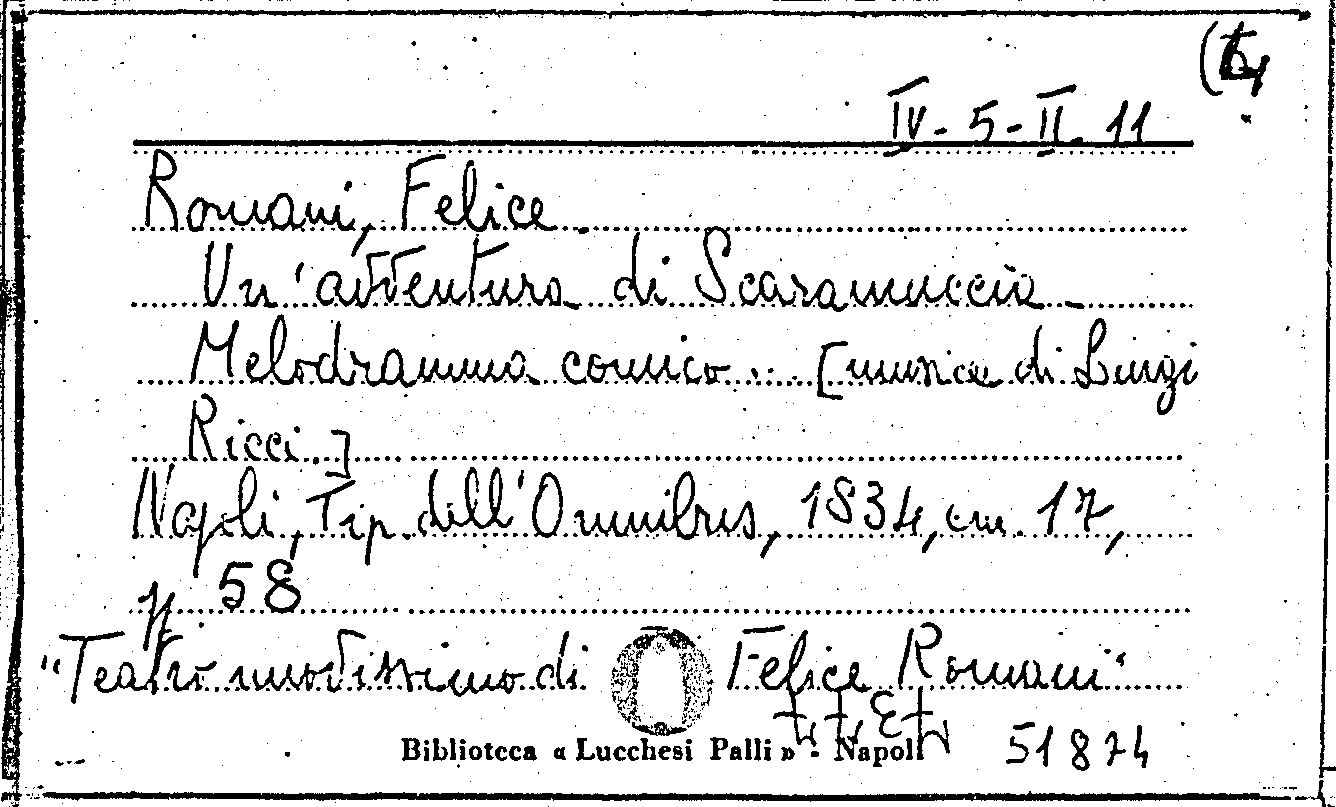 IV - 5 - II. 11
Romani, Felice.
Un'avventura di Scaramuccia -
Melodramma comico... [musica di Luigi
Ricci.]
Napoli, Tip. dell'Omnibus, 1834, cm. 17,
p. 58
"Teatro nuovissimo di Felice Romani"
Biblioteca « Lucchesi Palli » - Napoli
51874